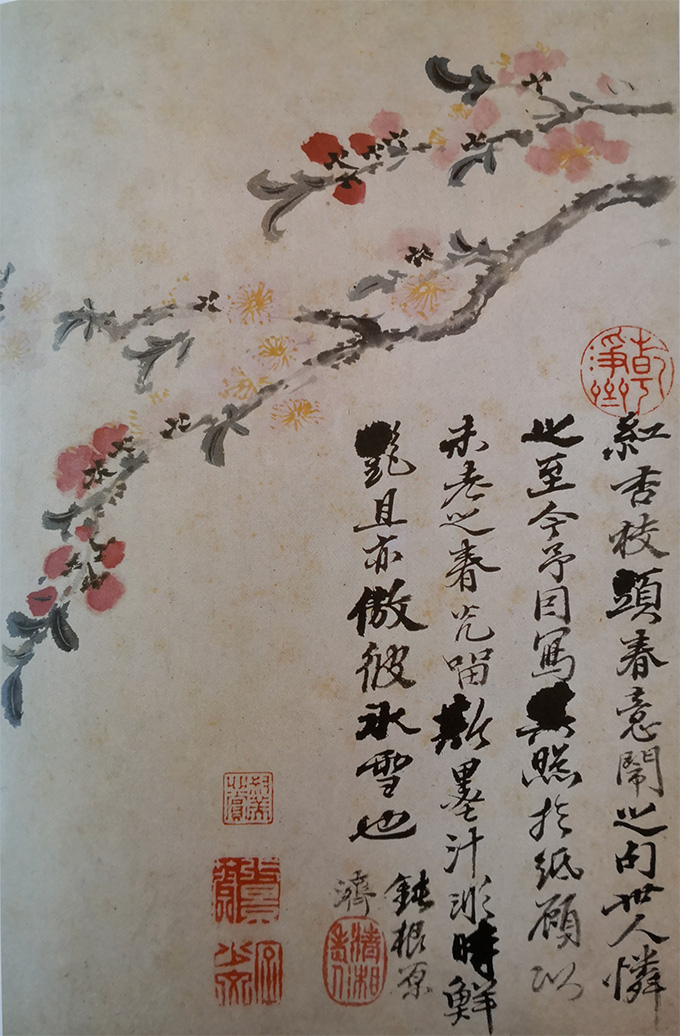 紅杏枝頭春意鬧之句世人憐
之至今予因寫其照於紙願以
未老之春光留斯墨汁時鮮
艷且亦傲彼冰雪也
鈍根原
濟
清湘老人